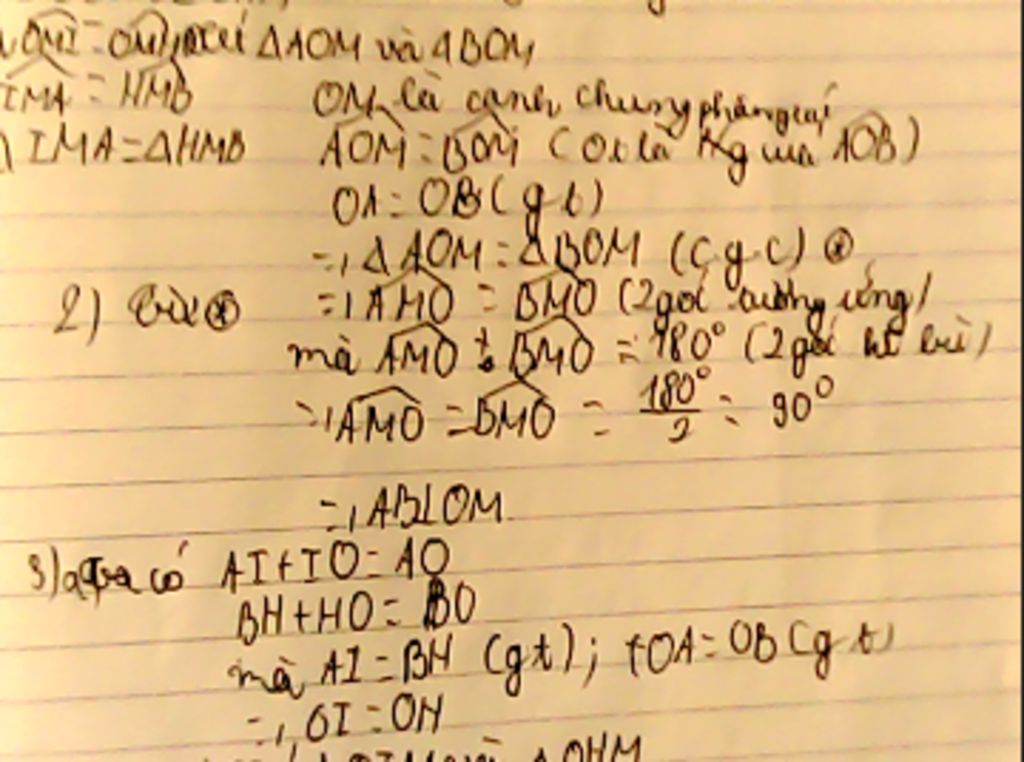 OMI = OMH xét ΔAOM và ΔBOM
IMA = HMB OM là cạnh chung phân giác
IMA = ΔHMB AOM = BOM (Ot là của AOB)
OA = OB (gt)
=> ΔAOM = ΔBOM (c g c) *
2) từ * => AMO = BMO (2 góc tương ứng)
mà AMO + BMO = 180° (2 góc kề bù)
=> AMO = BMO = 180°/2 = 90°
=> AB⊥OM
3) a) ta có AI + IO = AO
BH + HO = BO
mà AI = BH (gt); OA = OB (gt)
=> OI = OH
ΔOHM